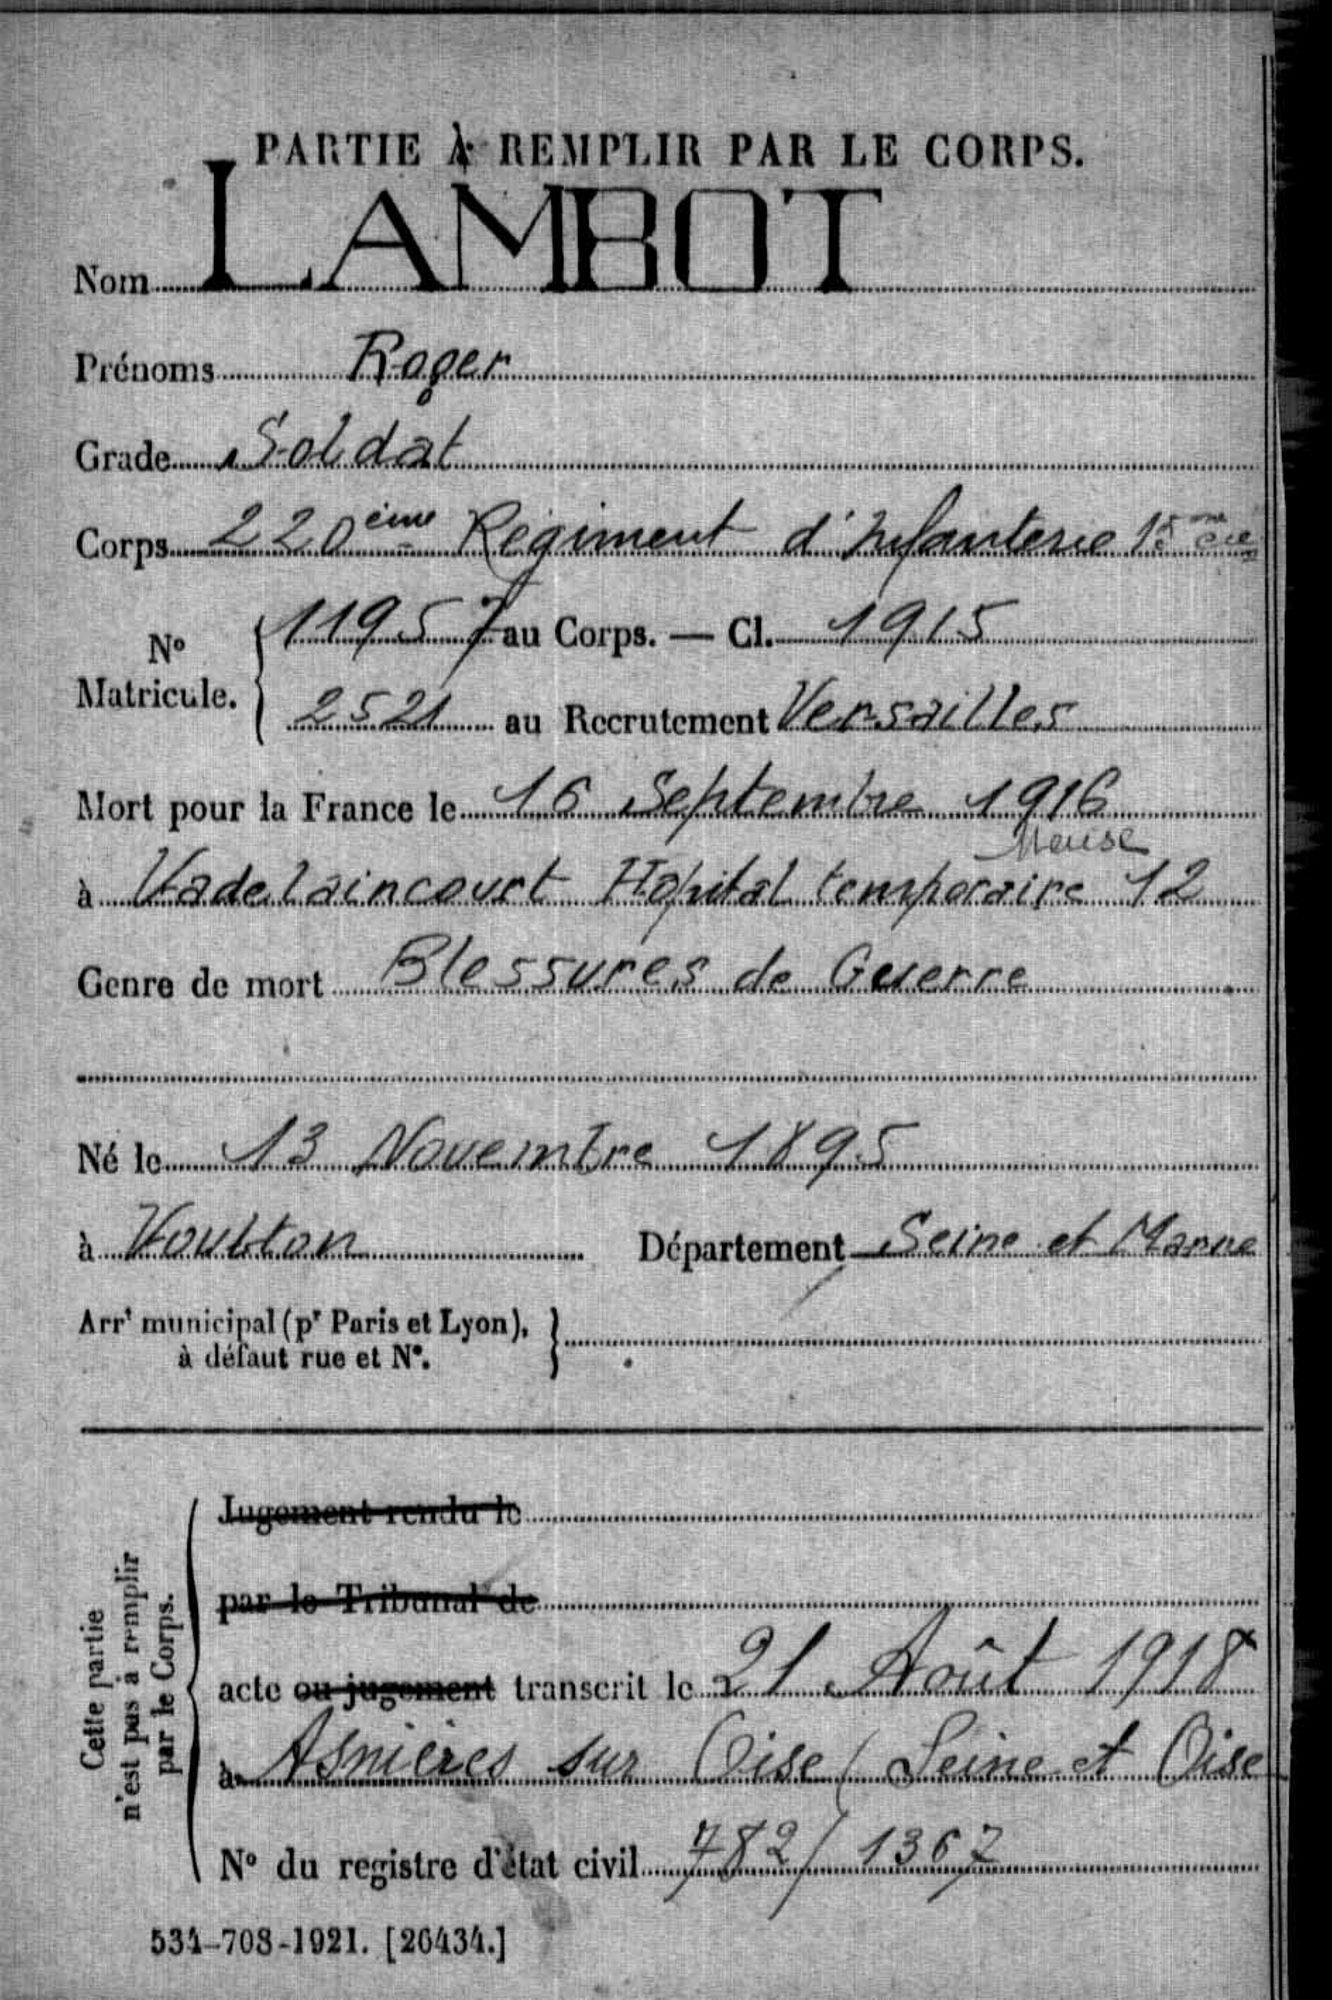 PARTIE À REMPLIR PAR LE CORPS.
Nom LAMBOT
Prénoms Roger
Grade Soldat
Corps 220ème Régiment d'Infanterie 15
N° Matricule. 11957 au Corps. — Cl. 1915
2521 au Recrutement Versailles
Mort pour la France le 16 Septembre 1916
Meuse
à Vadelaincourt Hopital temporaire 12
Genre de mort Blessures de Guerre
Né le 13 Novembre 1895
à Voulton Département Seine et Marne
Arrt municipal (pr Paris et Lyon),
à défaut rue et N°.
Cette partie
n'est pas à remplir
par le Corps.
Jugement rendu le
par le Tribunal de
acte ou jugement transcrit le 21 Août 1918
à Asnières sur Oise (Seine et Oise
N° du registre d'état civil 782/1367
534-708-1921. [26434.]